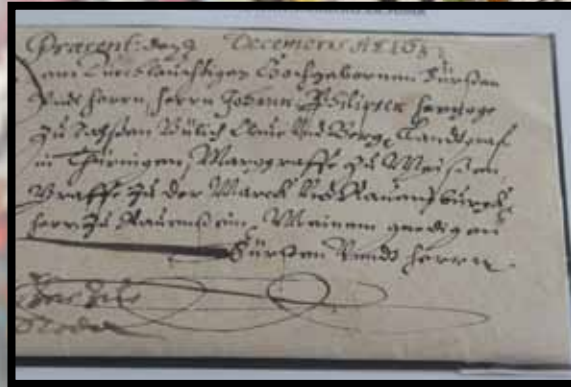 Præsent: den 9 Decembris A:
Dem Durchlauchtigen Hochgebornen Fürsten
Undt Herrn, Herrn Johann Philipsen Hertzoge
Zu Sachssen Gülich Cleue Und Berg, Landtgraf
in Thüringen, Marggraffe Zu Meissen,
Graffe Zu der Marck Und Rauenspurck,
Herr Zu Rauenstein, Meinem gnedigen
Fürsten Undt Herrn.